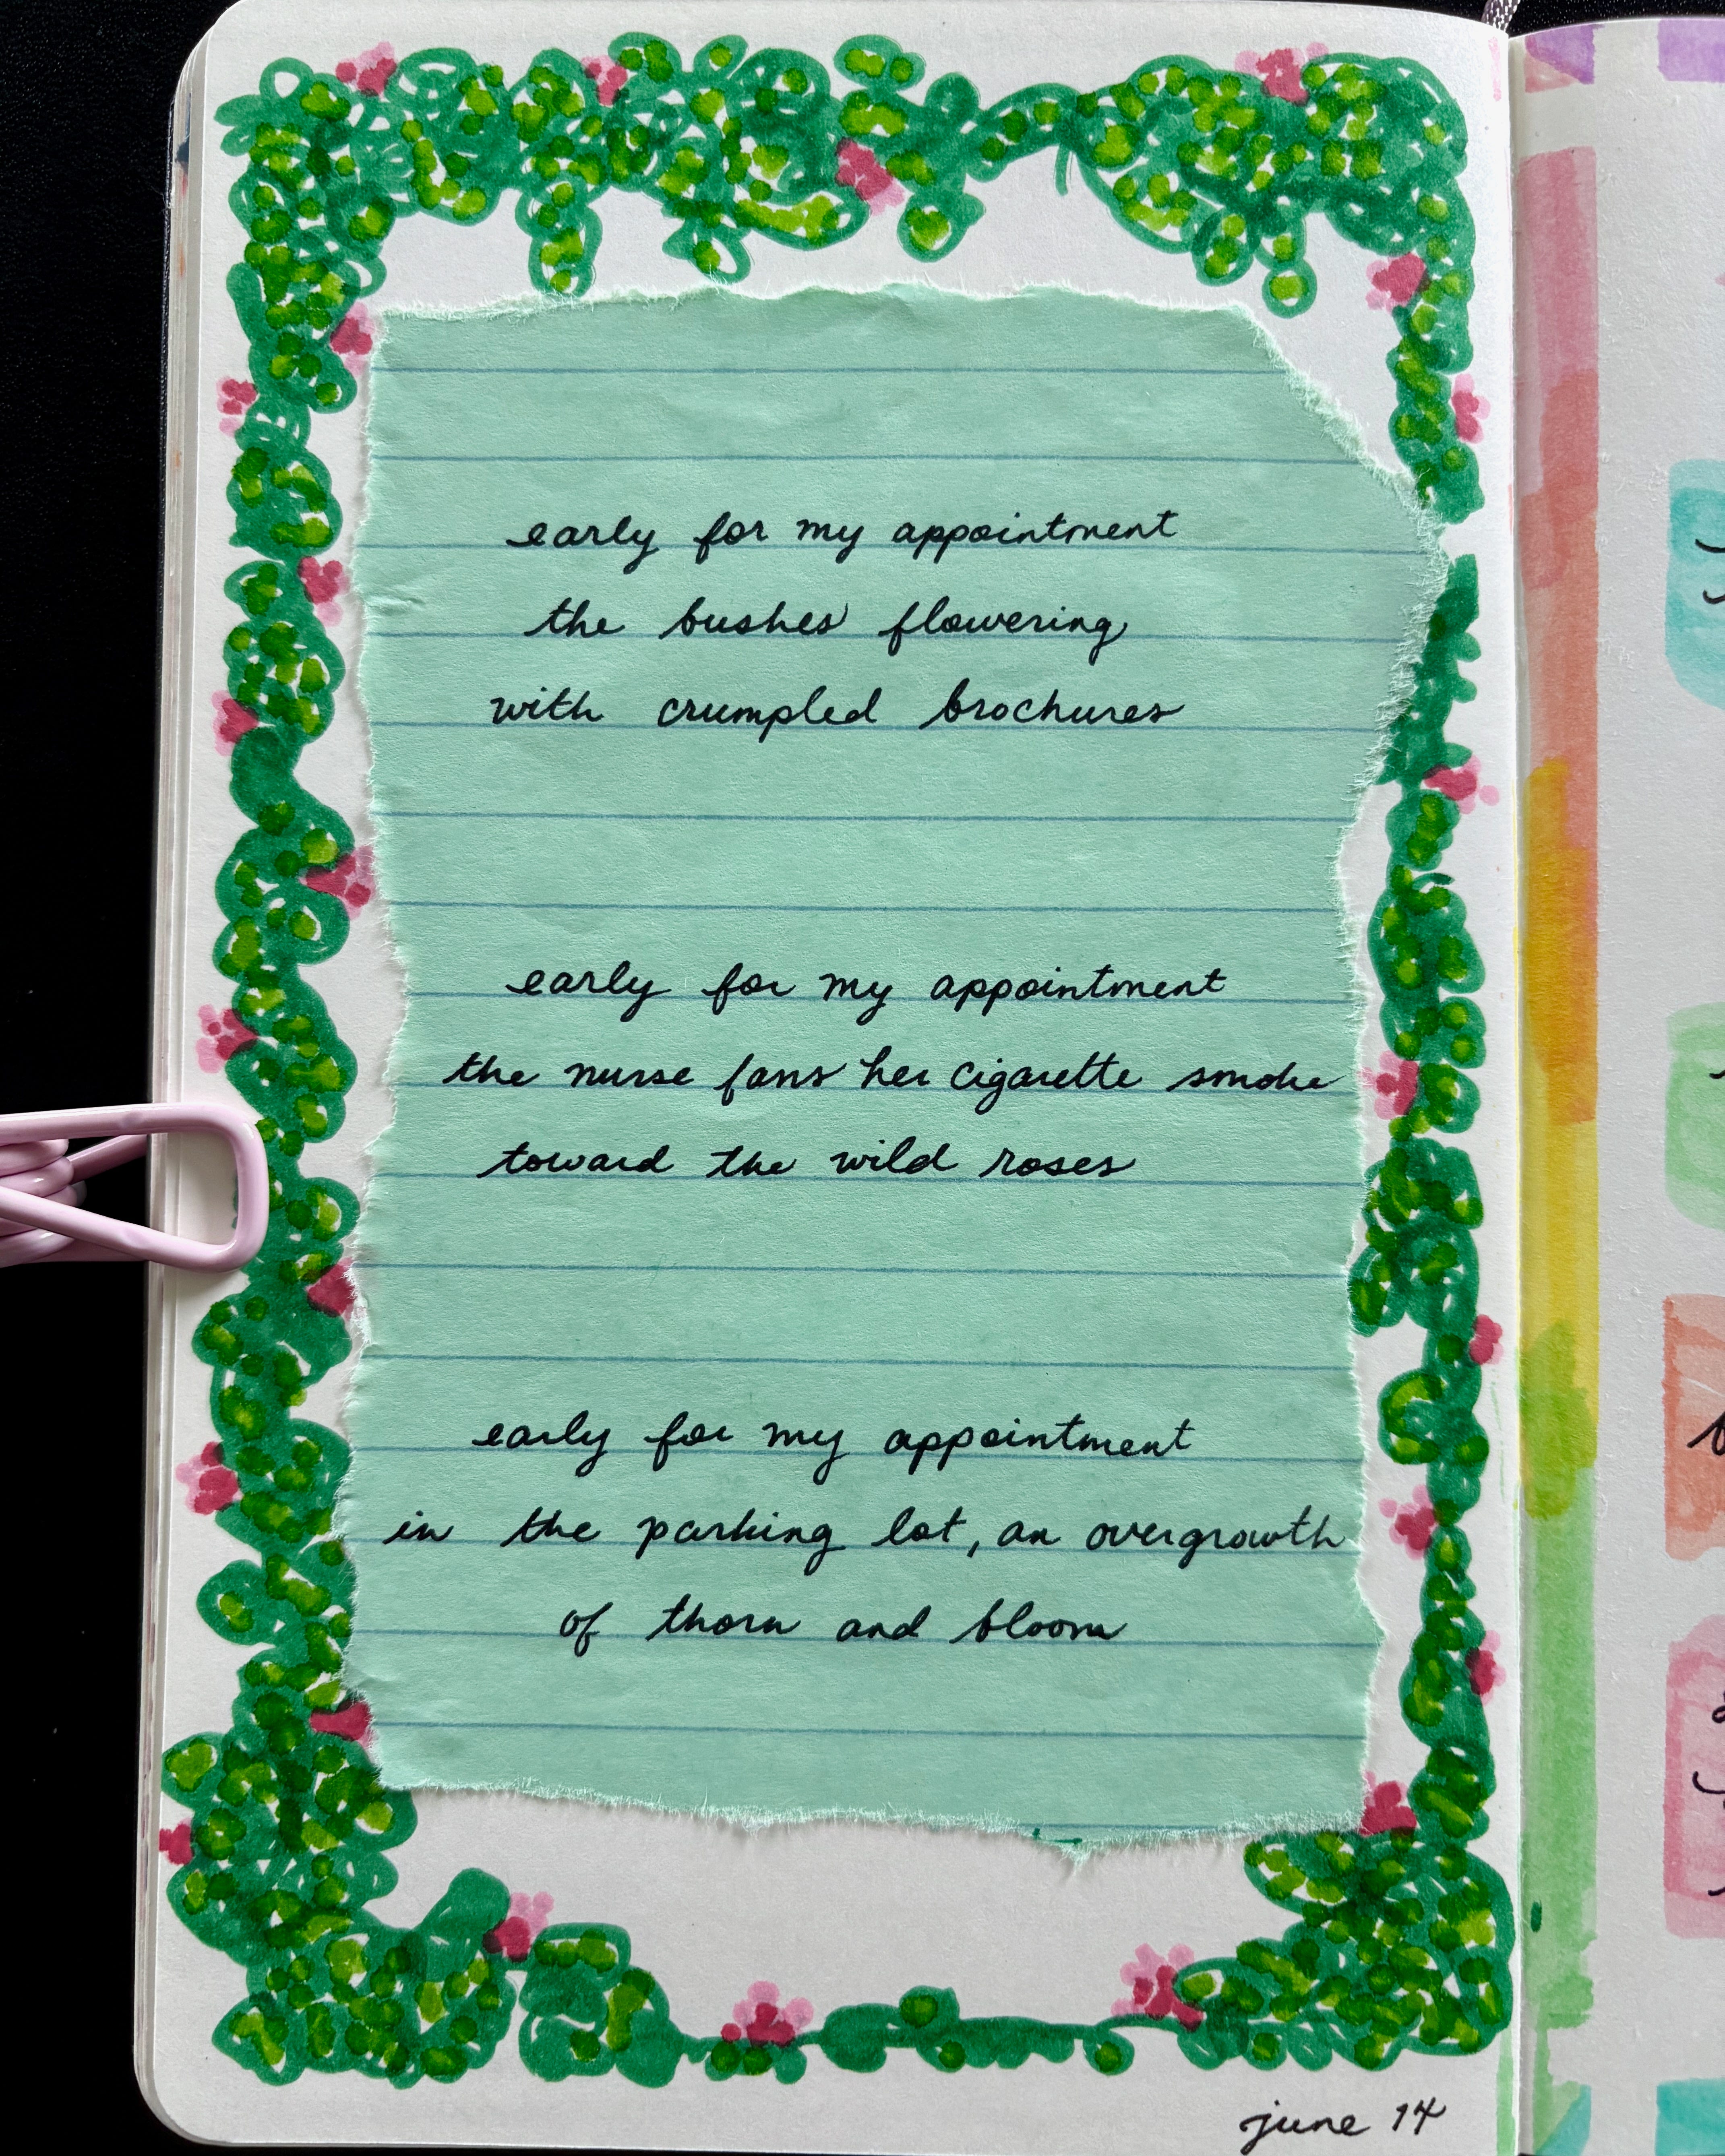 early for my appointment
the bushes flowering
with crumpled brochures
early for my appointment
the nurse fans her cigarette smoke
toward the wild roses
early for my appointment
in the parking lot, an overgrowth
of thorn and bloom
june 14